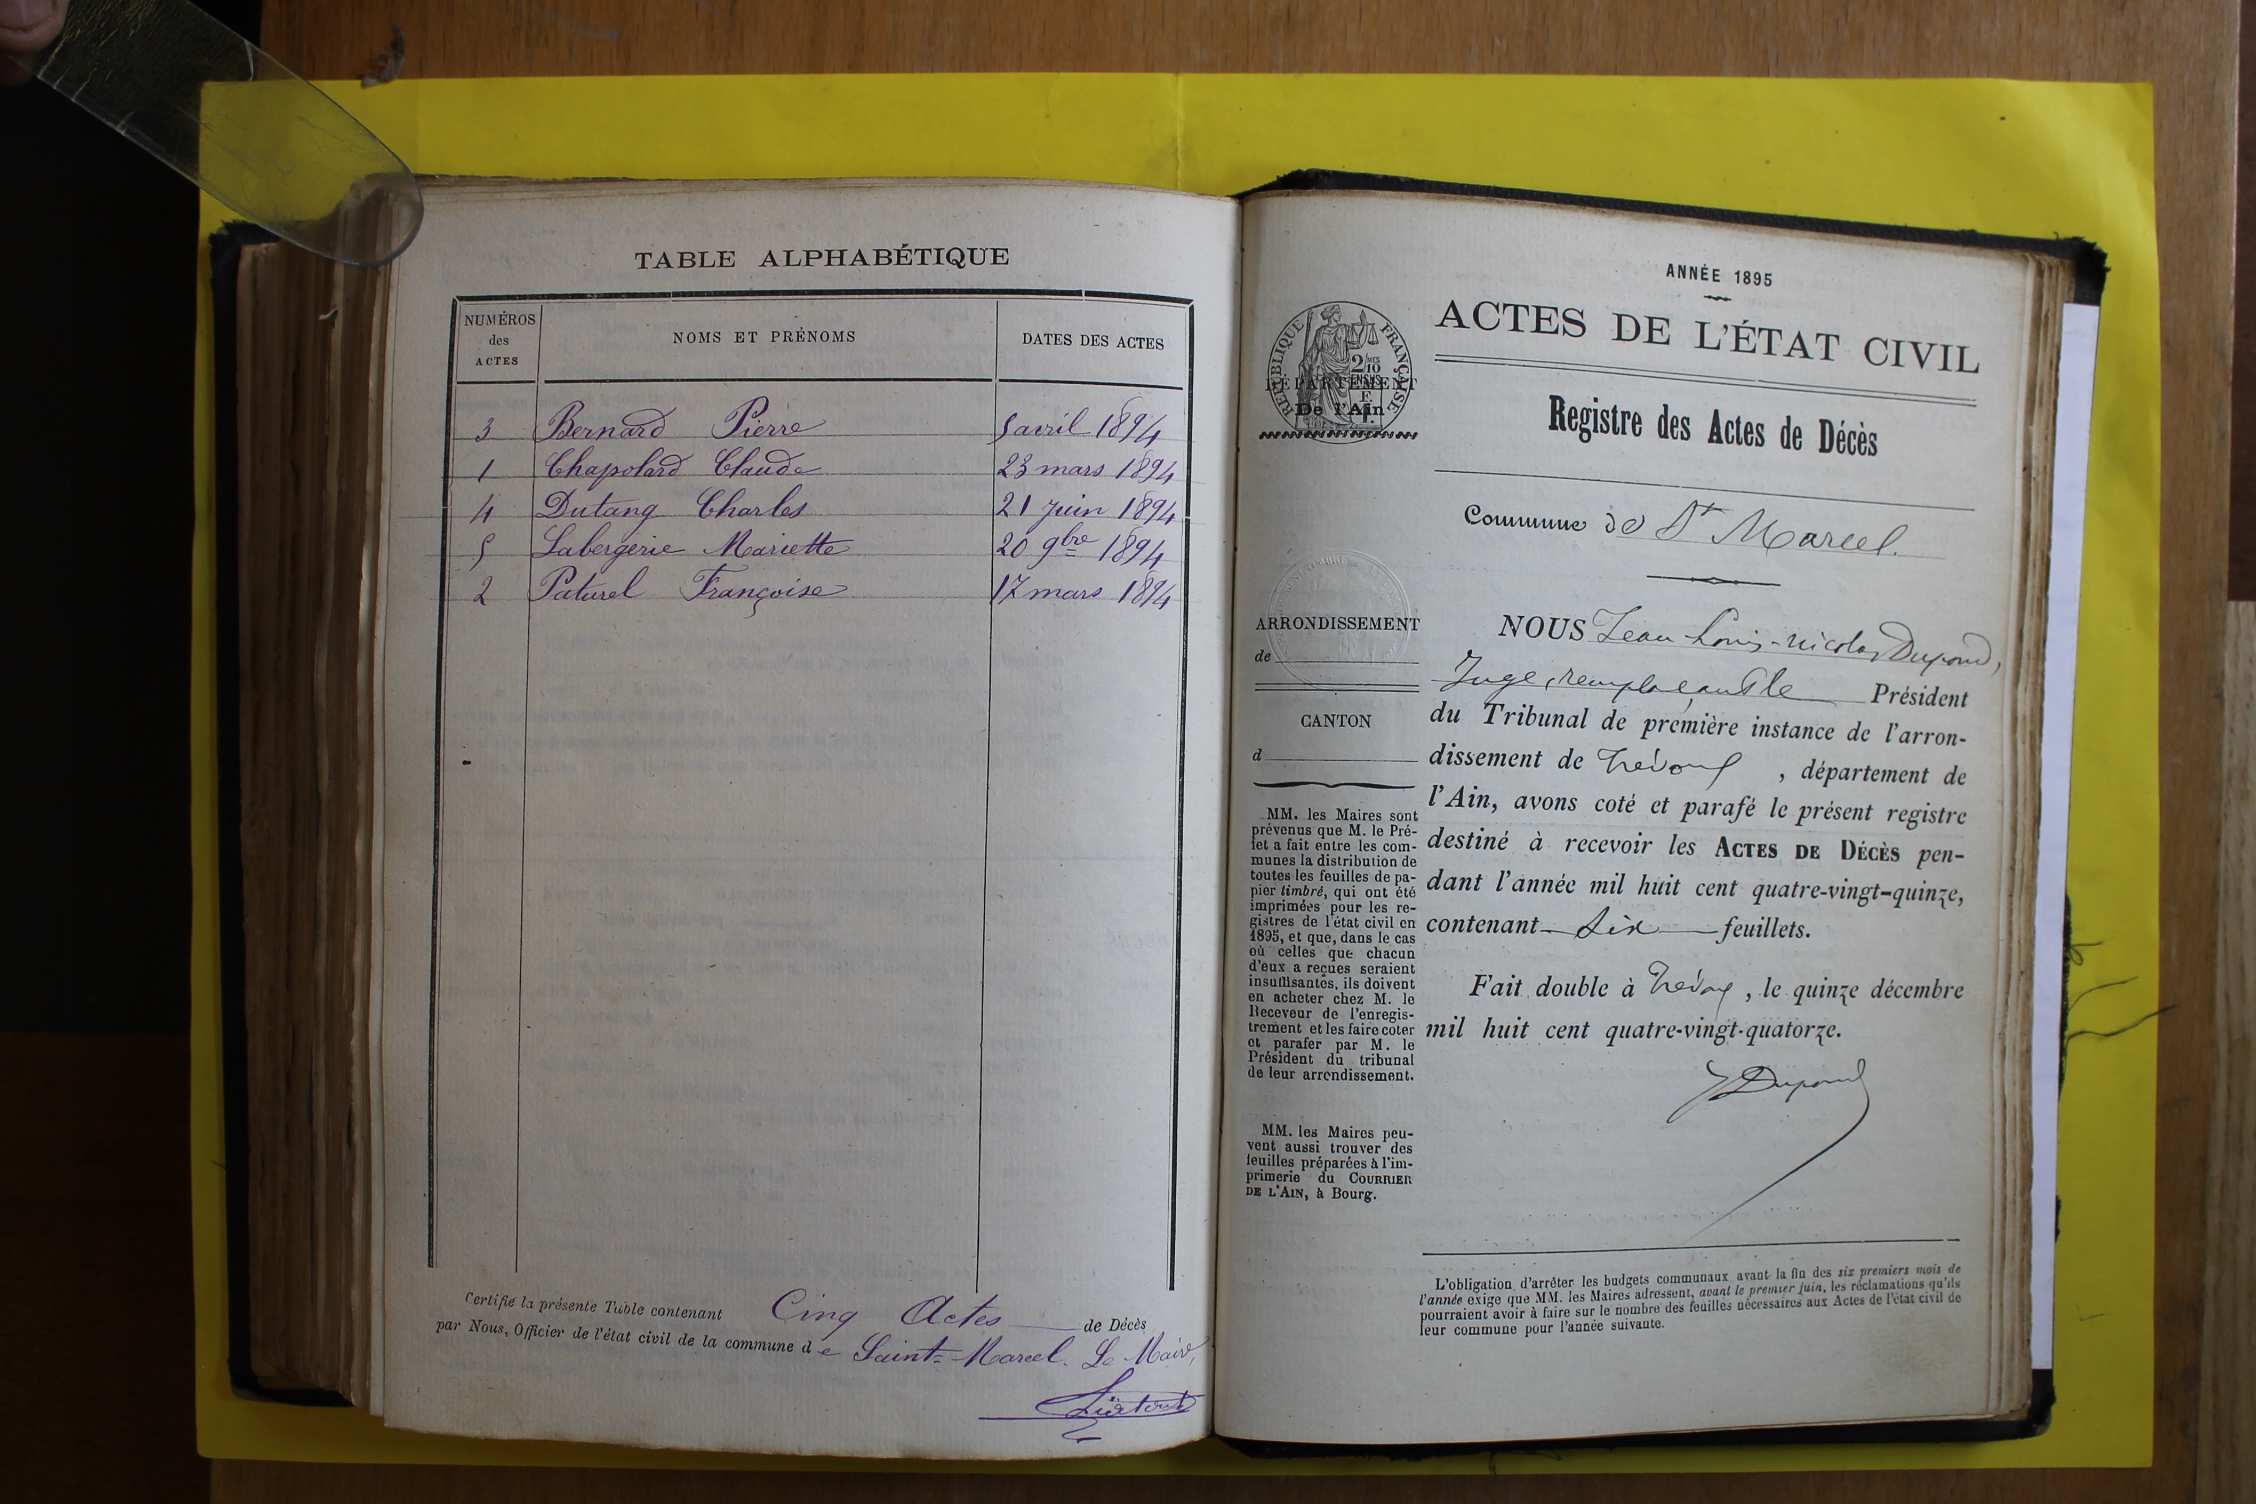 TABLE ALPHABÉTIQUE
NUMÉROS
des
ACTES
NOMS ET PRÉNOMS
DATES DES ACTES
3 Bernard Pierre 5 avril 1894
1 Chapolard Claude 23 mars 1894
4 Dutang Charles 21 juin 1894
5 Labergerie Mariette 20 9bre 1894
2 Paturel Françoise 17 mars 1894
Certifié la présente Table contenant Cinq Actes de Décès
par Nous, Officier de l'état civil de la commune de Saint-Marcel. Le Maire,
ANNÉE 1895
ACTES DE L'ÉTAT CIVIL
RÉPUBLIQUE FRANÇAISE
2/10
DÉPARTEMENT
De l'Ain
Registre des Actes de Décès
Commune de St Marcel.
ARRONDISSEMENT
de
CANTON
d
MM. les Maires sont
prévenus que M. le Pré-
fet a fait entre les com-
munes la distribution de
toutes les feuilles de pa-
pier timbré, qui ont été
imprimées pour les re-
gistres de l'état civil en
1895, et que, dans le cas
où celles que chacun
d'eux a reçues seraient
insuffisantes, ils doivent
en acheter chez M. le
Receveur de l'enregis-
trement et les faire coter
et parafer par M. le
Président du tribunal
de leur arrondissement.
MM. les Maires peu-
vent aussi trouver des
feuilles préparées à l'im-
primerie du COURRIER
DE L'AIN, à Bourg.
NOUS Jean-Louis-Nicolas Dupond,
Juge, remplaçant le Président
du Tribunal de première instance de l'arron-
dissement de Trévoux, département de
l'Ain, avons coté et parafé le présent registre
destiné à recevoir les ACTES DE DÉCÈS pen-
dant l'année mil huit cent quatre-vingt-quinze,
contenant Six feuillets.
Fait double à Trévoux, le quinze décembre
mil huit cent quatre-vingt-quatorze.
Dupond
L'obligation d'arrêter les budgets communaux avant la fin des six premiers mois de
l'année exige que MM. les Maires adressent, avant le premier juin, les réclamations qu'ils
pourraient avoir à faire sur le nombre des feuilles nécessaires aux Actes de l'état civil de
leur commune pour l'année suivante.